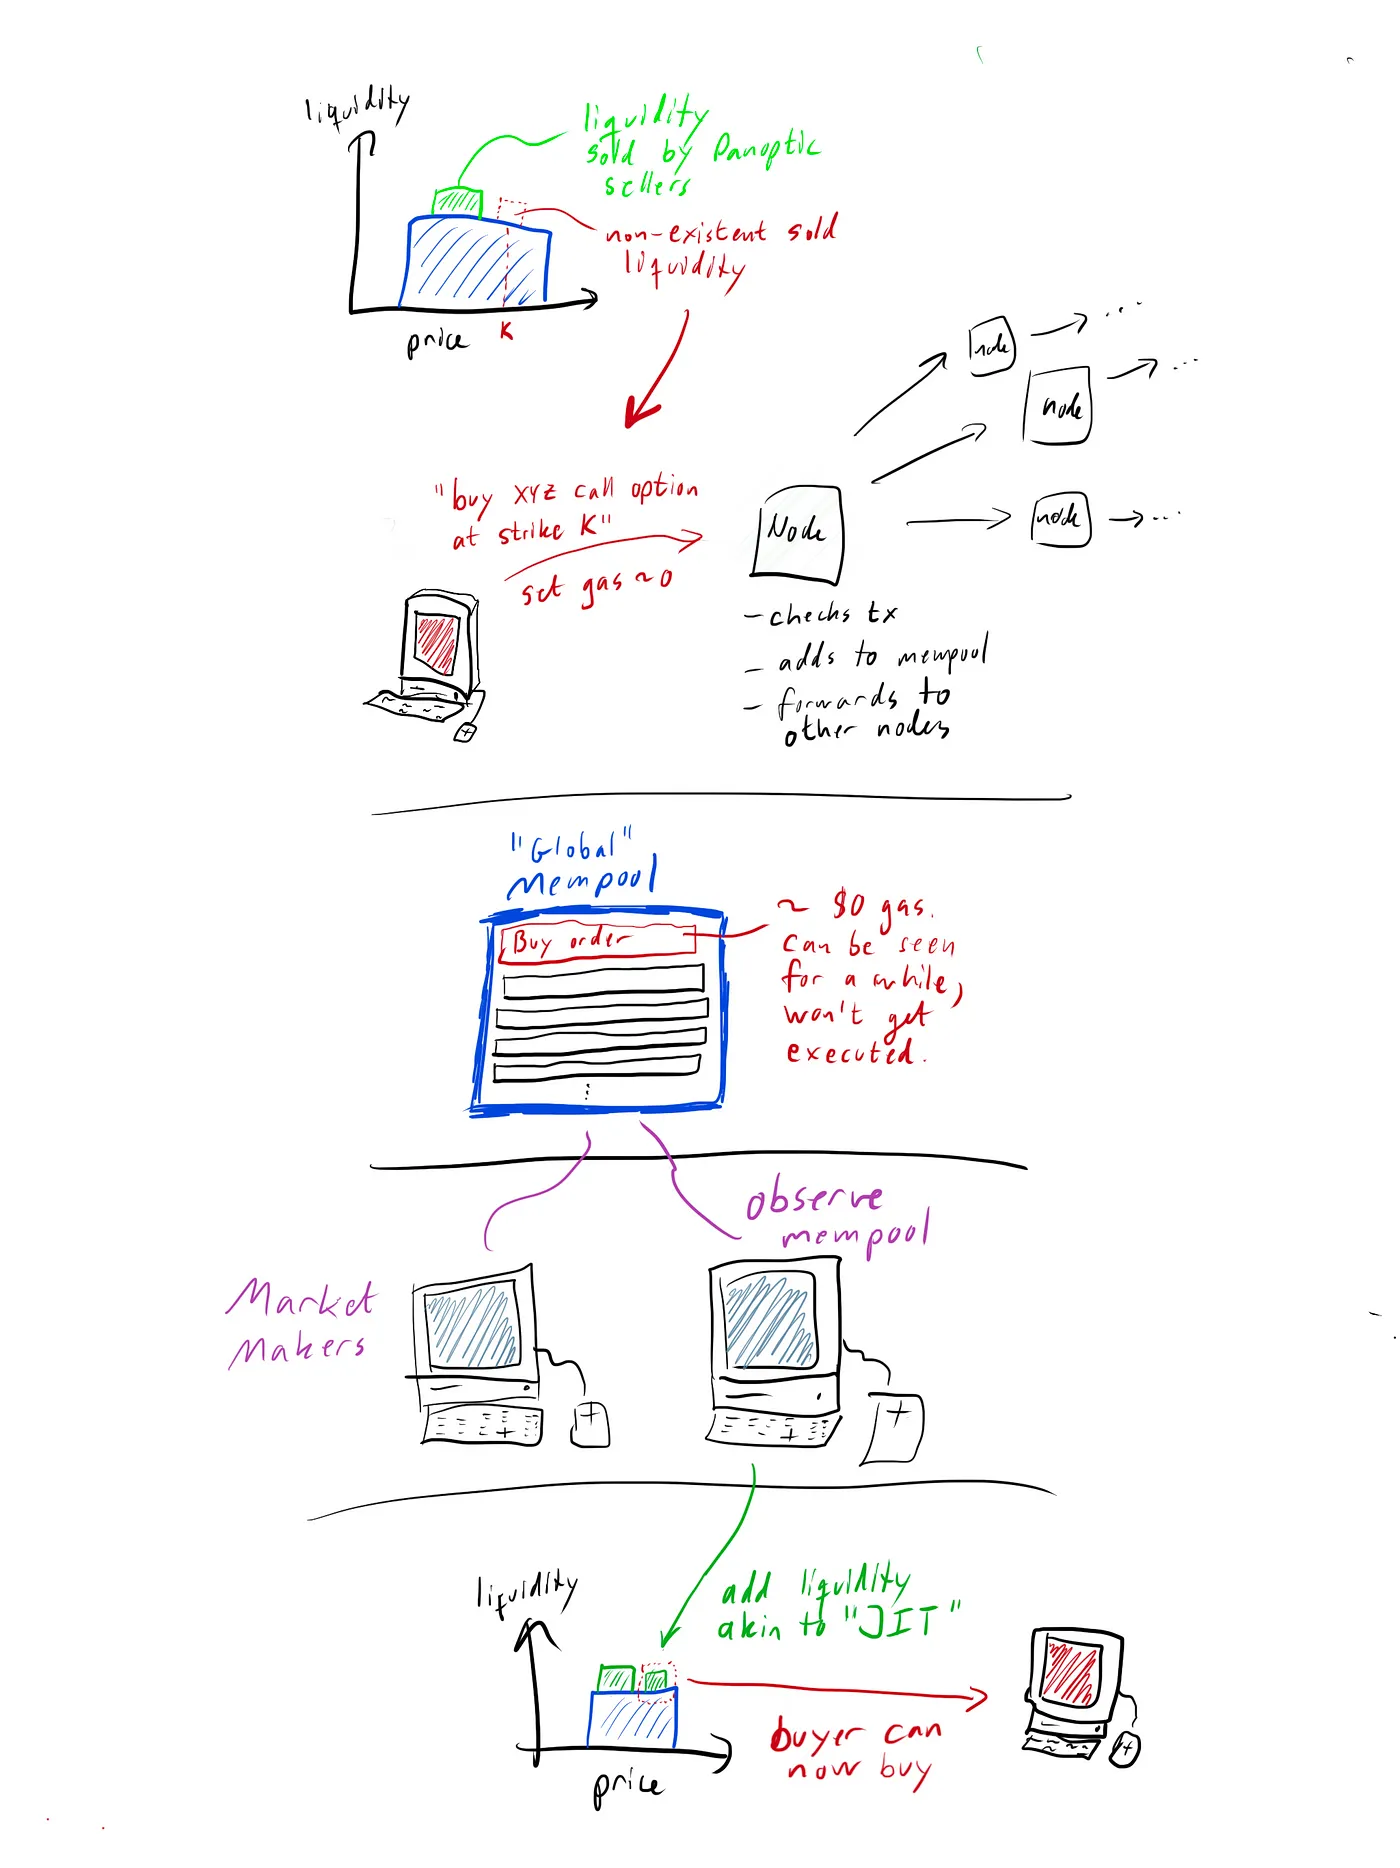 liquidity
liquidity
sold by Panoptic
sellers
non-existent sold
liquidity
price
K
node
node
node
"buy XYZ call option
at strike K"
set gas ~0
Node
- checks tx
- adds to mempool
- forwards to
other nodes
"Global"
Mempool
Buy order
~ $0 gas.
can be seen
for a while,
won't get
executed.
observe
mempool
Market
Makers
liquidity
add liquidity
akin to "JIT"
price
buyer can
now buy